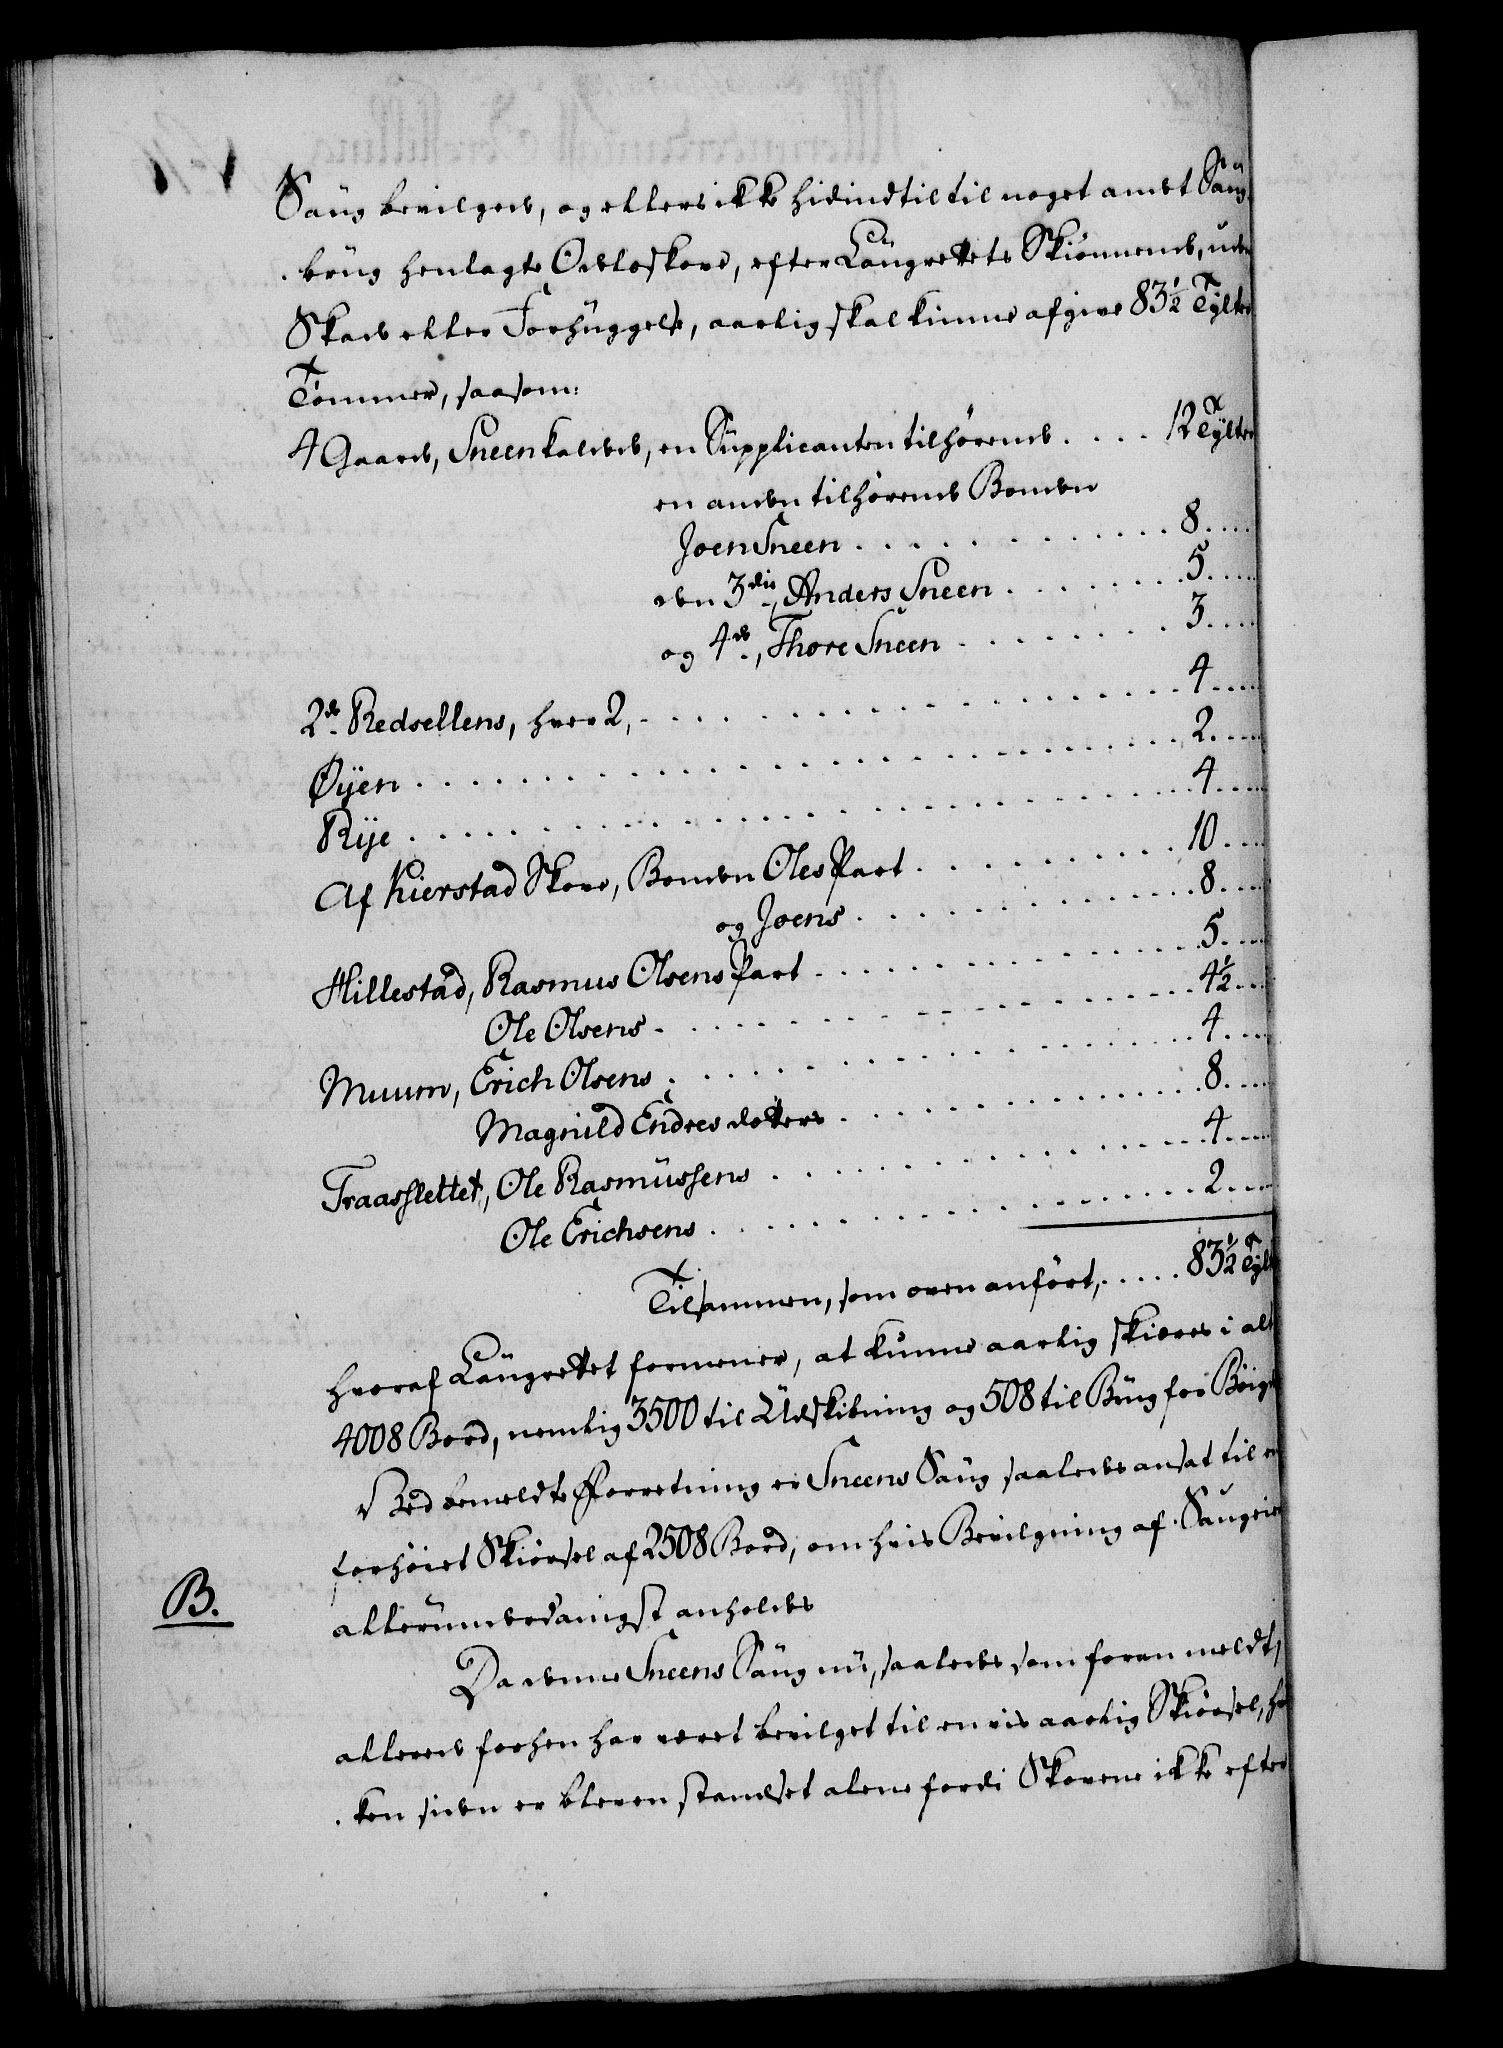 Saug bevilgede, og ellers ikke hidindtil til noget andet Saug-
. brug henlagte Odelsskove, efter Laugrettets Skiønnende, uden
Skade eller Forhuggelse, aarlig skal kunne afgive 83½ Tylter
Tømmer, saasom:
4 Gaarde, Sneen kaldede, en Supplicanten tilhørende .... 12 Tylter
en anden tilhørende Bonden
Joen Sneen ............ 8 ....
den 3die, Anders Sneen ........ 5 ....
og 4de, Thore Sneen ......... 3 ....
2de Redsellens, hver 2, ................ 4 ....
Øyen ........................ 2 ....
Rije ........................ 4 ....
Af Kierstad Skove, Bonden Oles Part ........... 10 ....
og Joens ............. 8 ....
Hillestad, Rasmus Olsens Part .............. 5 ....
Ole Olsens .................. 4½ ...
Muum, Erich Olsens .................. 4 ....
Magnild Endres dotters ............. 8 ....
Traasslettet, Ole Rasmussens ................ 4 ....
Ole Erichsens .................. 2 ....
Tilsammen, som oven anført, ..... 83½ Tylt
hvoraf Laugrettet formener, at kunne aarlig skiæres i alt
4008 Bord, nemlig 3500 til Udskibning og 508 til Brug for Bøigd
Ved bemeldte Forretning er Sneens Saug saaledes ansat til en
forhøiet Skiørsel af 2508 Bord, om hvis Bevilgning af Saugeier
B.
allerunderdanigst anholdes
Da denne Sneens Saug nu, saaledes som foran meldt,
allerede forhen har været bevilget til en vis aarlig Skiørsel, hvil
. ken siden er bleven standset alene fordi Skovene ikke efter